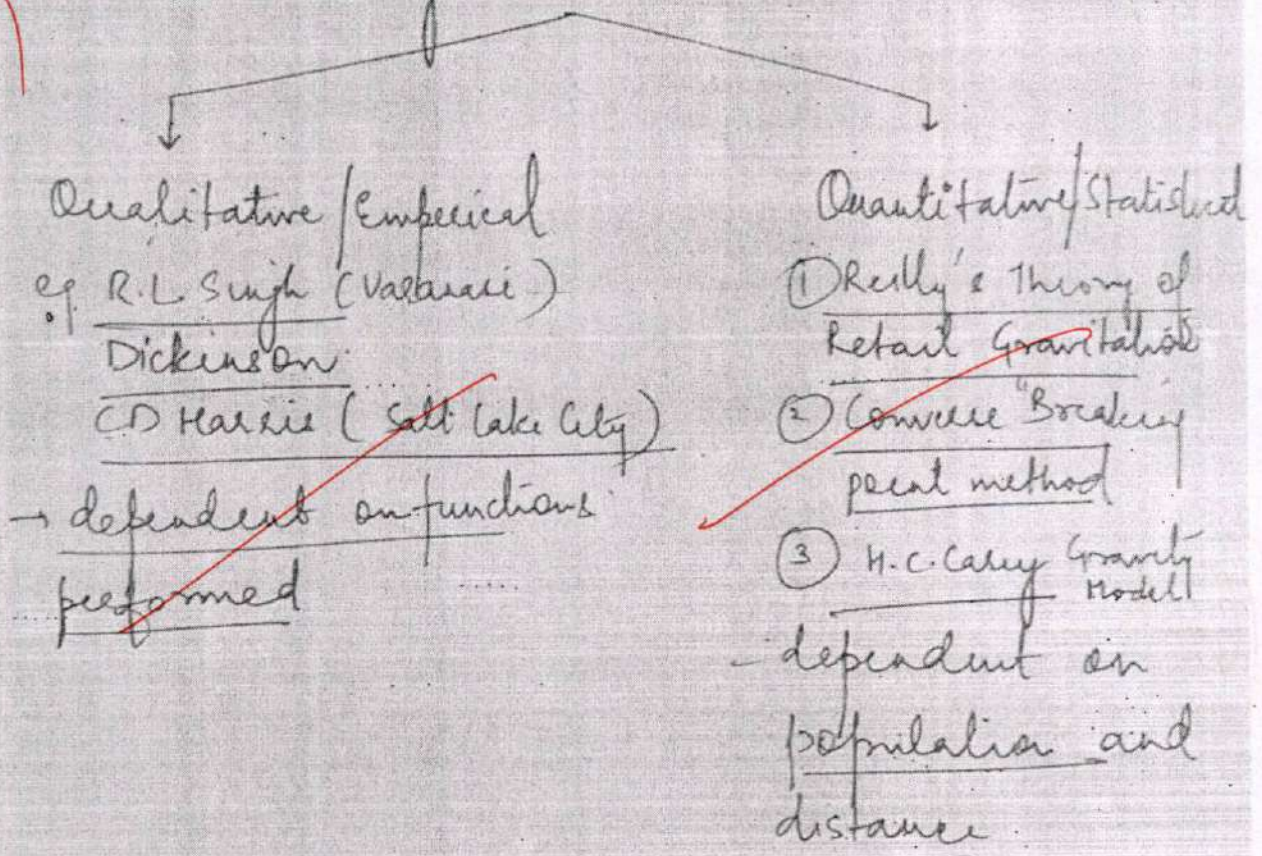 Qualitative/Emperical
eg R.L Singh (Varanasi)
Dickinson
CD Harris (Salt Lake City)
→ dependent on functions
performed
Quantitative/Statistical
① Reilly's Theory of
Retail Gravitation
② Converse "Breaking
point method
③ H.C. Carey Gravity
Model
- dependent on
population and
distance.